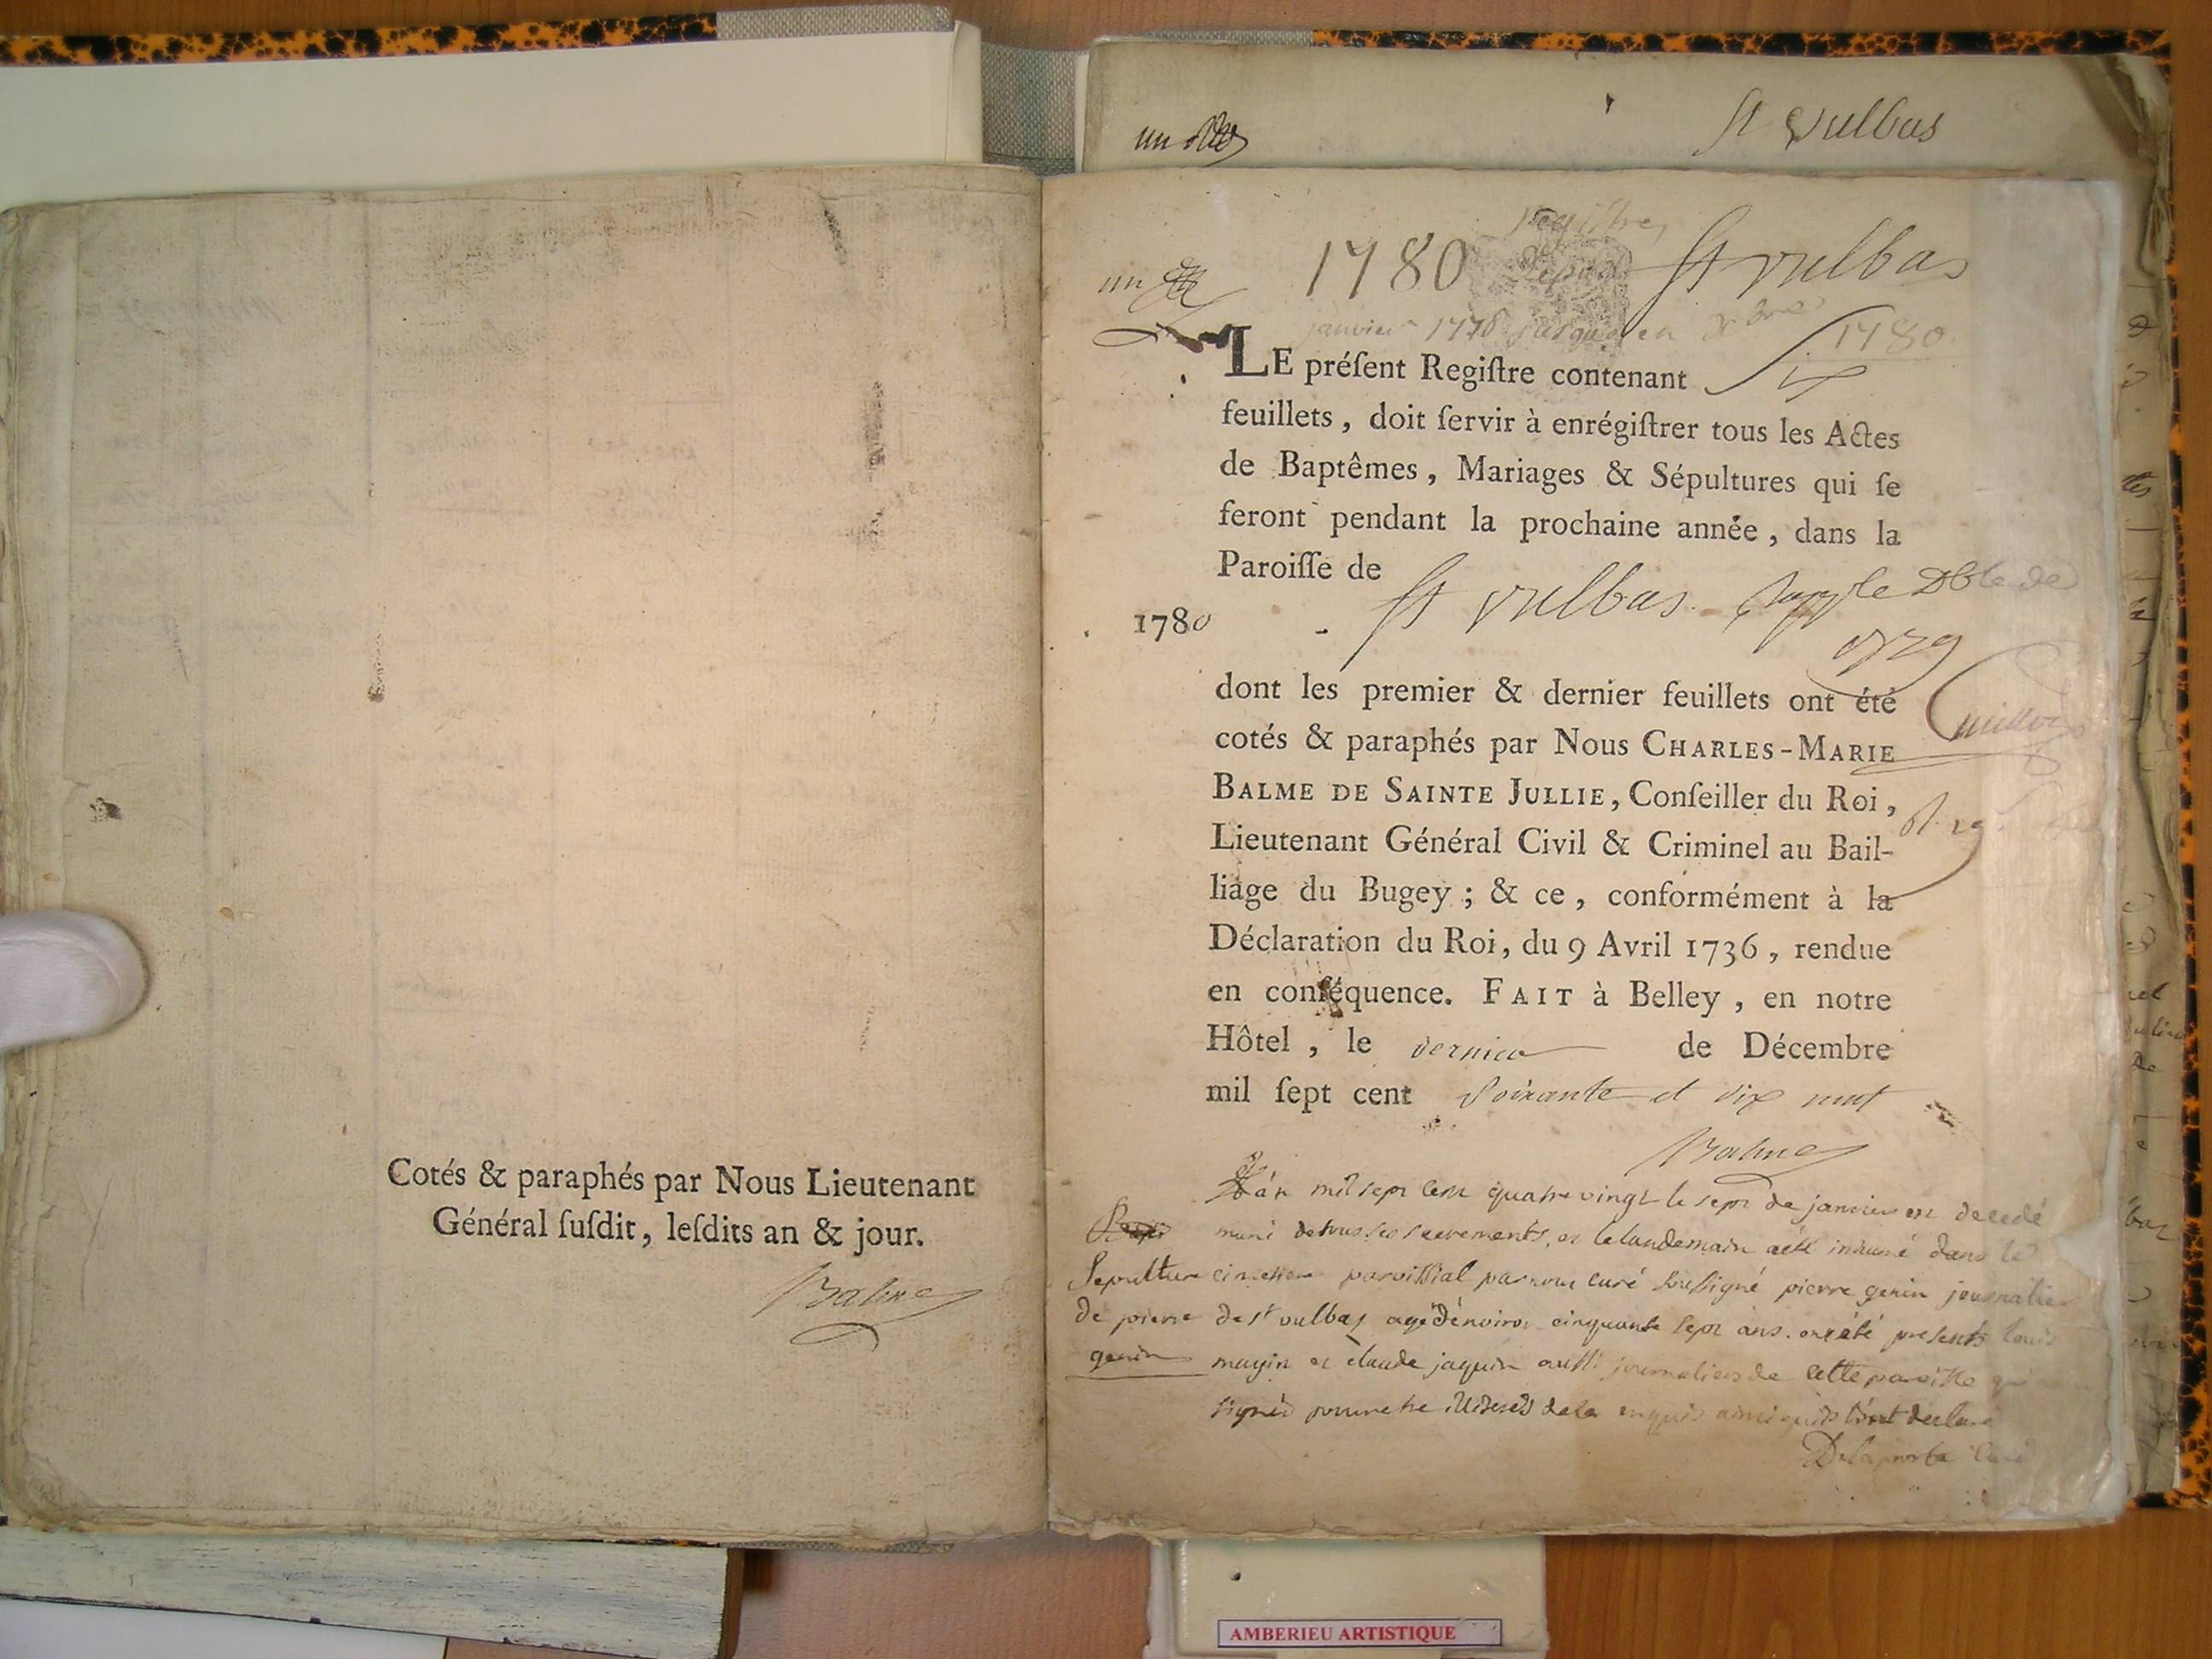 Cotés & paraphés par Nous Lieutenant
Général ſuſdit, leſdits an & jour.
Balme
un
St Vulbas
Registre
un
1780 depuis St vulbas
janvier 1778 jusqu'en Xbre 1780
LE préſent Regiſtre contenant Six
feuillets, doit ſervir à enrégiſtrer tous les Actes
de Baptêmes, Mariages & Sépultures qui ſe
feront pendant la prochaine année, dans la
Paroiſſe de
St vulbas. le Dble de
1780
dont les premier & dernier feuillets ont été
cotés & paraphés par Nous CHARLES-MARIE
BALME DE SAINTE JULLIE, Conſeiller du Roi,
Lieutenant Général Civil & Criminel au Bail-
liage du Bugey; & ce, conformément à la
Déclaration du Roi, du 9 Avril 1736, rendue
en conſéquence. FAIT à Belley, en notre
Hôtel, le dernier de Décembre
mil ſept cent Soixante et dix neuf
Balme
L'an mil sept cent quatre vingt le sept de janvier est decedé
muni de tous ses sacrements, et le landemain a eté inhumé dans le
Sepulture cimettiere paroissial par nous curé soussigné pierre genin journalier
de pierre de st vulbas agé d'environ cinquante sept ans. ont été presents louis
genin mugin et claude jaquin aussi journaliers de cette paroisse qui
signés pour ne de ce enquis ainsi qu'ils l'ont declaré
Delaporte Curé
AMBERIEU ARTISTIQUE